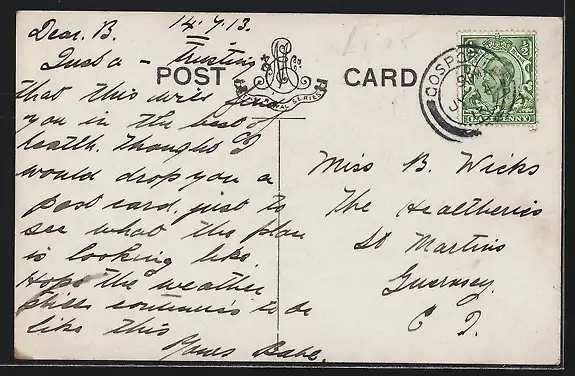 Dear. B. 14.7.13.
Just a - Trusting
that this will find
you in the best of
health. Thought I
would drop you a
post card, just to
see what the place
is looking like.
Hope the weather
still continues to be
like this
Yours Babe.
POST CARD
SERIES
£1.25
GOSPORT
HALFPENNY
Miss B. Wicks
The Healtheries
St Martins
Guernsey.
C I.